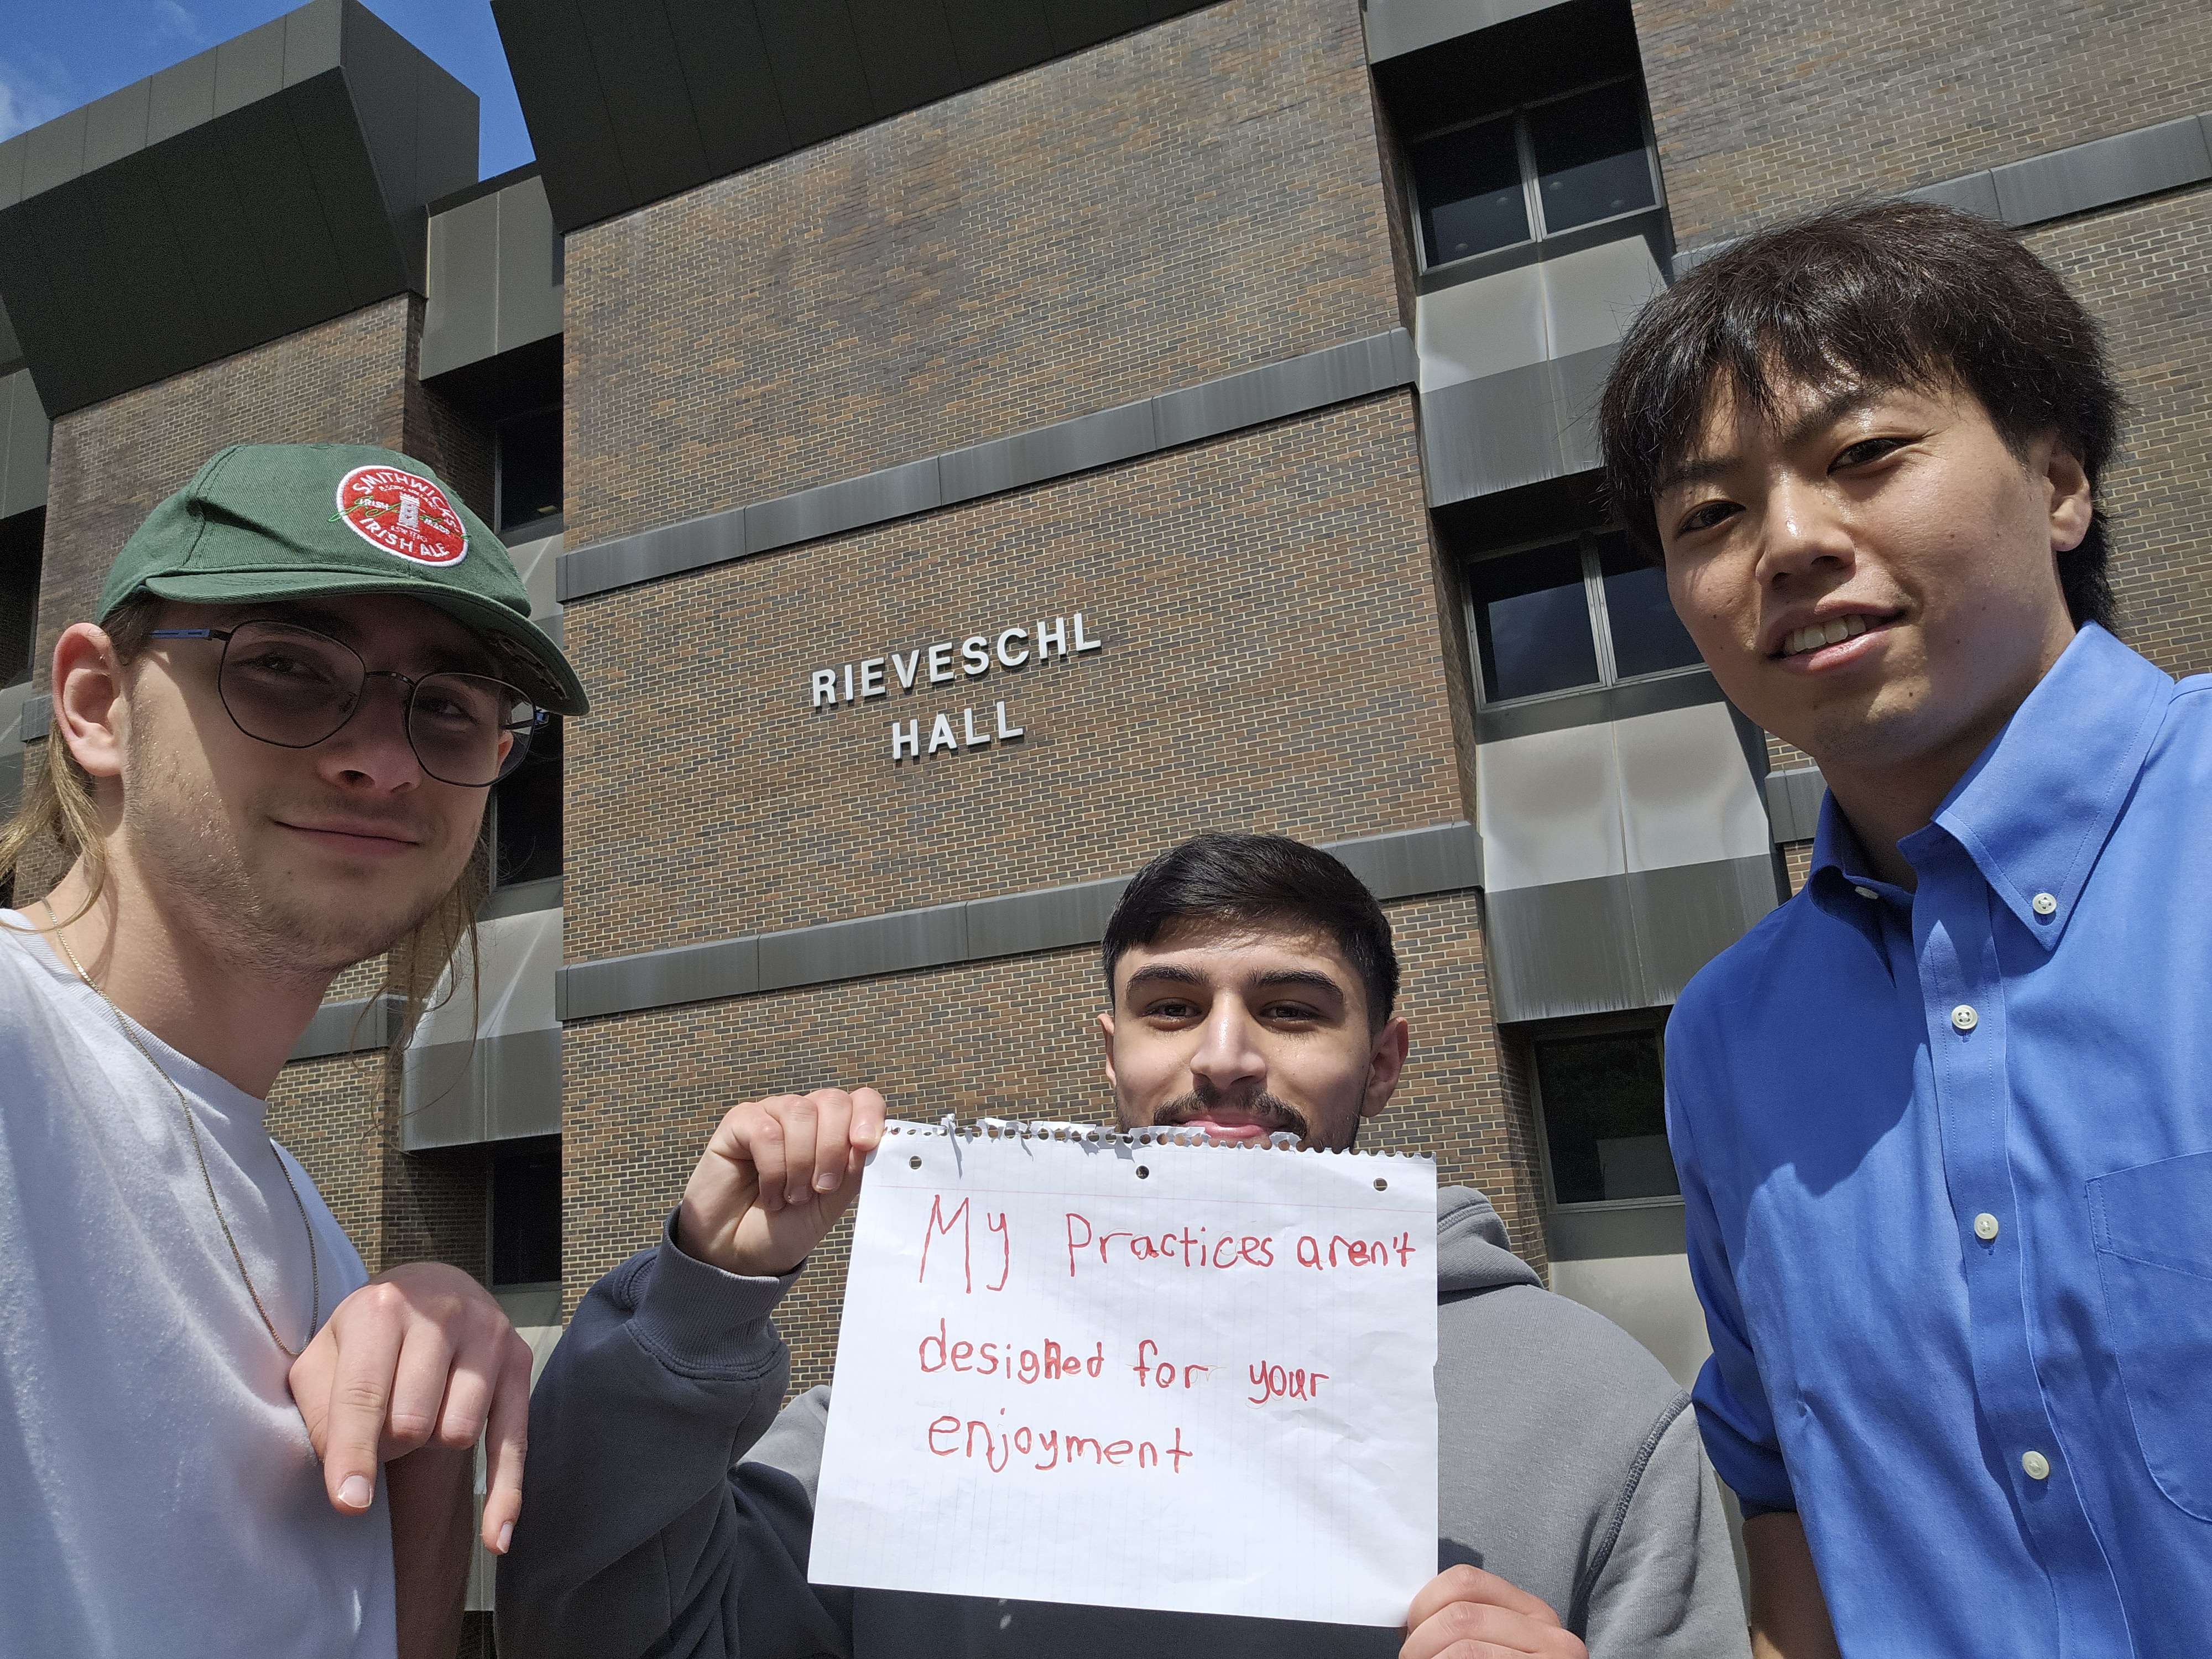 SMITHWICK'S
IRISH ALE
RIEVESCHL
HALL
My Practices aren't
designed for your
enjoyment